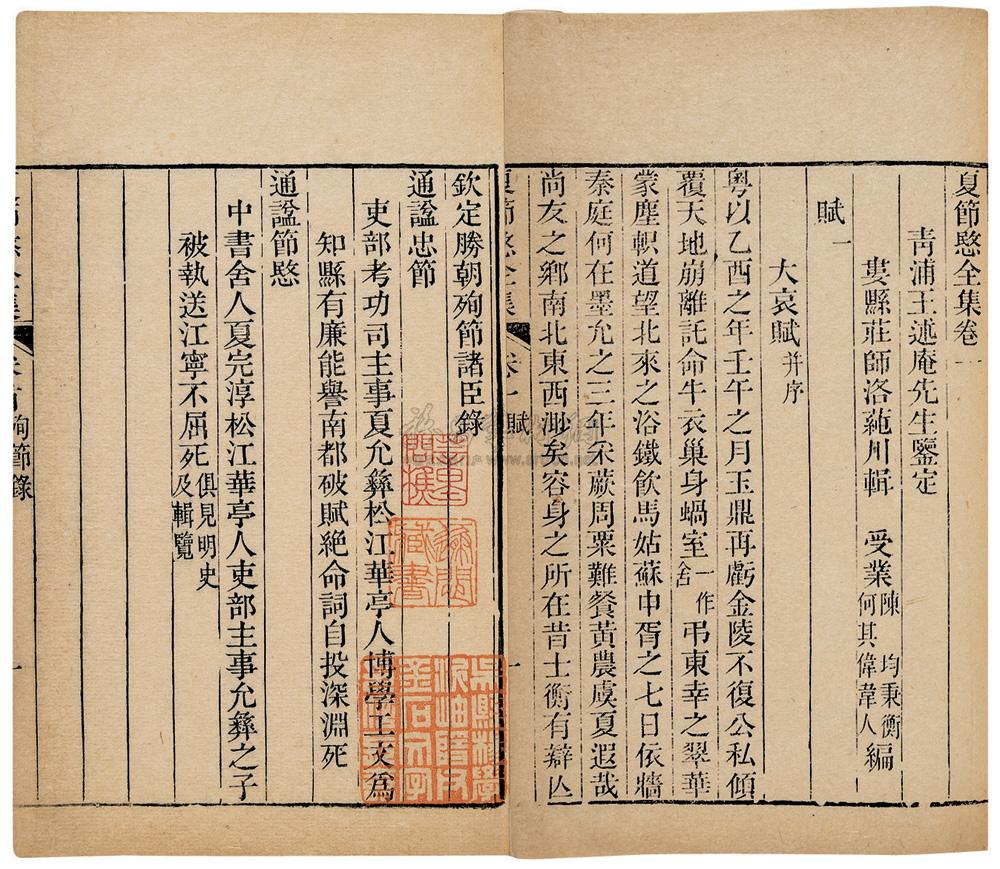 夏節愍全集卷一
青浦王述庵先生鑒定
婁縣莊師洛蒓川輯　受業陳　均秉衡何其偉韋人編
賦一
大哀賦并序
粵以乙酉之年壬午之月玉鼎再虧金陵不復公私傾
覆天地崩離託命牛衣巢身蝸室一作舍弔東幸之翠華
蒙塵軹道望北來之浴鐵飲馬姑蘇申胥之七日依牆
秦庭何在墨允之三年采蕨周粟難餐黃農虞夏遐哉
尚友之鄉南北東西渺矣容身之所在昔士衡有辯亾
夏節愍全集　卷一　賦　一
欽定勝朝殉節諸臣錄
通謚忠節
吏部考功司主事夏允彝松江華亭人博學工文爲
知縣有廉能譽南都破賦絕命詞自投深淵死
通謚節愍
中書舍人夏完淳松江華亭人吏部主事允彝之子
被執送江寧不屈死俱見明史及輯覽
夏節愍全集　卷首　殉節錄　一